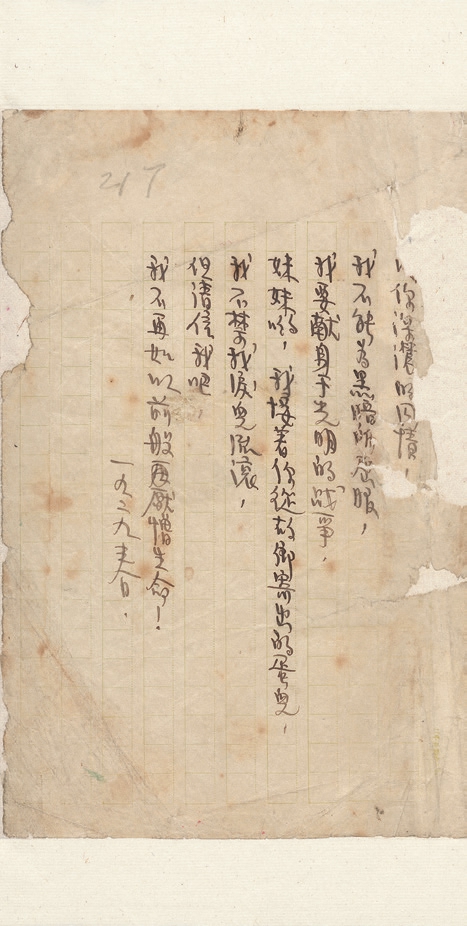 你深濃的同情，
我不能為黑暗所屈服，
我要獻身于光明的战爭，
妹妹喲，我懷著你從故鄉寄出的蛋兒，
我不禁我淚兒流滾，
但請信我吧，
我不再如以前般再厭憎生命！
一九二九春日，
217